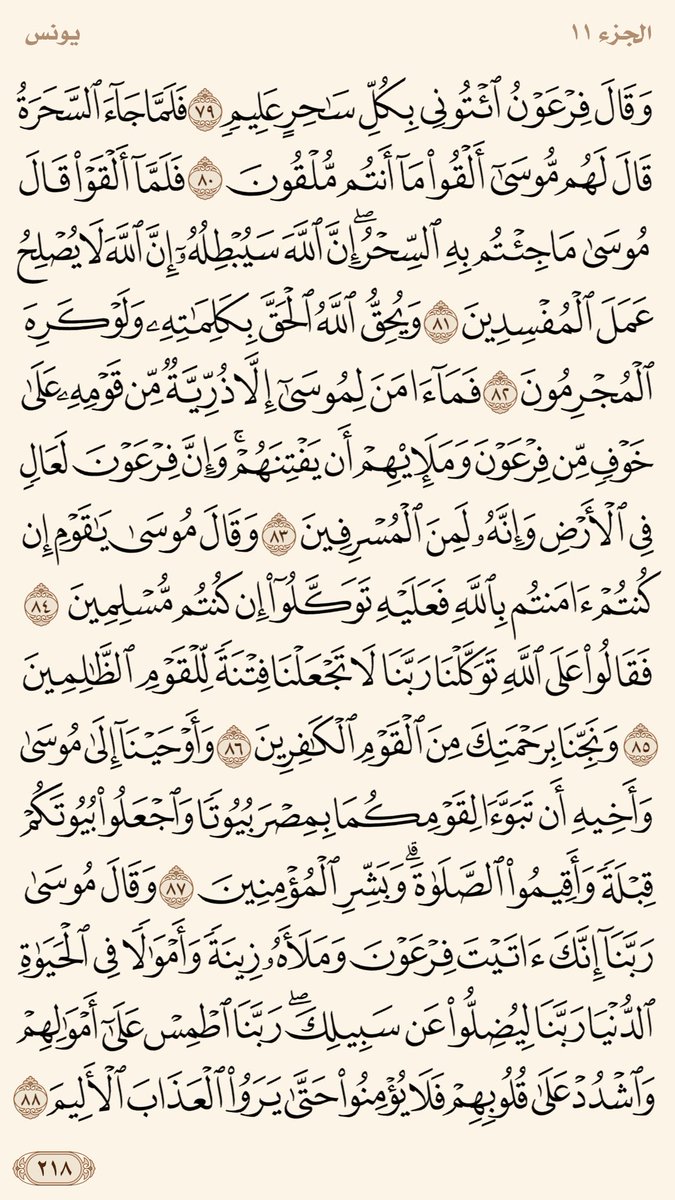 الجزء ١١
يونس
وَقَالَ فِرْعَوْنُ ٱئْتُونِي بِكُلِّ سَٰحِرٍ عَلِيمٍ ٧٩ فَلَمَّا جَآءَ ٱلسَّحَرَةُ
قَالَ لَهُم مُّوسَىٰٓ أَلْقُوا۟ مَآ أَنتُم مُّلْقُونَ ٨٠ فَلَمَّآ أَلْقَوْا۟ قَالَ
مُوسَىٰ مَا جِئْتُم بِهِ ٱلسِّحْرُۖ إِنَّ ٱللَّهَ سَيُبْطِلُهُۥٓ إِنَّ ٱللَّهَ لَا يُصْلِحُ
عَمَلَ ٱلْمُفْسِدِينَ ٨١ وَيُحِقُّ ٱللَّهُ ٱلْحَقَّ بِكَلِمَٰتِهِۦ وَلَوْ كَرِهَ
ٱلْمُجْرِمُونَ ٨٢ فَمَآ ءَامَنَ لِمُوسَىٰٓ إِلَّا ذُرِّيَّةٌ مِّن قَوْمِهِۦ عَلَىٰ
خَوْفٍ مِّن فِرْعَوْنَ وَمَلَإِي۟هِمْ أَن يَفْتِنَهُمْۚ وَإِنَّ فِرْعَوْنَ لَعَالٍ
فِي ٱلْأَرْضِ وَإِنَّهُۥ لَمِنَ ٱلْمُسْرِفِينَ ٨٣ وَقَالَ مُوسَىٰ يَٰقَوْمِ إِن
كُنتُمْ ءَامَنتُم بِٱللَّهِ فَعَلَيْهِ تَوَكَّلُوٓا۟ إِن كُنتُم مُّسْلِمِينَ ٨٤
فَقَالُوا۟ عَلَى ٱللَّهِ تَوَكَّلْنَا رَبَّنَا لَا تَجْعَلْنَا فِتْنَةً لِّلْقَوْمِ ٱلظَّٰلِمِينَ
٨٥ وَنَجِّنَا بِرَحْمَتِكَ مِنَ ٱلْقَوْمِ ٱلْكَٰفِرِينَ ٨٦ وَأَوْحَيْنَآ إِلَىٰ مُوسَىٰ
وَأَخِيهِ أَن تَبَوَّءَا لِقَوْمِكُمَا بِمِصْرَ بُيُوتًا وَٱجْعَلُوا۟ بُيُوتَكُمْ
قِبْلَةً وَأَقِيمُوا۟ ٱلصَّلَوٰةَۗ وَبَشِّرِ ٱلْمُؤْمِنِينَ ٨٧ وَقَالَ مُوسَىٰ
رَبَّنَآ إِنَّكَ ءَاتَيْتَ فِرْعَوْنَ وَمَلَأَهُۥ زِينَةً وَأَمْوَٰلًا فِي ٱلْحَيَوٰةِ
ٱلدُّنْيَا رَبَّنَا لِيُضِلُّوا۟ عَن سَبِيلِكَۖ رَبَّنَا ٱطْمِسْ عَلَىٰٓ أَمْوَٰلِهِمْ
وَٱشْدُدْ عَلَىٰ قُلُوبِهِمْ فَلَا يُؤْمِنُوا۟ حَتَّىٰ يَرَوُا۟ ٱلْعَذَابَ ٱلْأَلِيمَ ٨٨
٢١٨